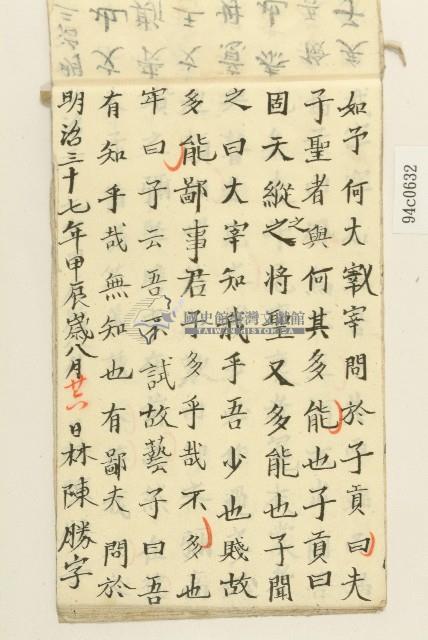 如予何大宰宰問於子貢曰夫
子聖者與何其多能也子貢曰
固天縱之之將聖又多能也子聞
之曰大宰知我乎吾少也賤故
多能鄙事君子多乎哉不多也
牢曰子云吾不試故藝子曰吾
有知乎哉無知也有鄙夫問於
明治三十七年甲辰歲八月廿六日林陳勝字
94c0632
國史館臺灣文獻館
TAIWAN HISTORICA